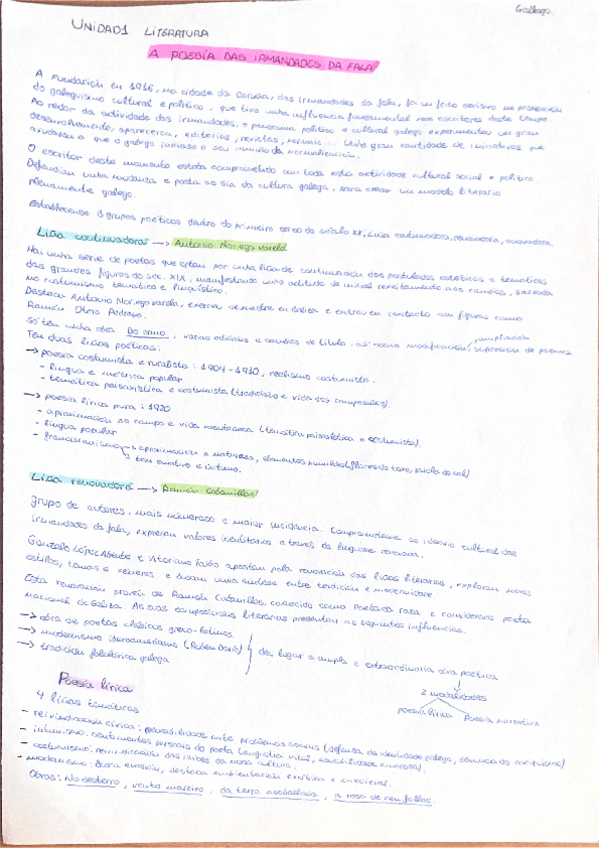 Gallego
UNIDAD1 LITERATURA
A POESÍA DAS IRMANDADES DA FALA
A Fundación en 1916, na cidade da Coruña, das irmandades da fala, foi un feito decisivo na
do galeguismo cultural e político, que tivo unha influencia fundamental nos escritores deste tempo.
Ao redor da actividade das irmandades, o panorama político e cultural galego experimentou un gran
desenvolvemento, apareceron, editorias, revistas, xornais... Unha gran cantidade de iniciativas que
axudaron a que o galego iniciase o seu camiño da normalización.
O escritor deste momento estaba comprometido con toda esta actividade cultural social e político.
Defendían unha mudanza e posta ao día da cultura galega, para crear un modelo literario
plenamente galego.
Establécense 3 grupos poéticos dentro do primeiro terzo do século XX, Liña continuadora, renovadora, innovadora.
Liña continuadora → Antonio Noriega Varela
Hai unha serie de poetas que optan por unha liña de continuación dos postulados estéticos e temáticos
das grandes figuras do séc. XIX, manifestando unha actitude de inicial rexeitamento aos cambios, baseada
no costumismo temático e lingüístico.
Destaca Antonio Noriega Varela, exerceu de mestre en e entrou en contacto con figuras como
Ramón Otero Pedrayo.
Só ten unha obra Do ermo, varias edicións e cambios de título, así como modificación, ampliación supresión de poemas
Ten dúas liñas poéticas:
→ poesía costumista e ruralista: 1904-1910, realismo costumista.
- lingua e métrica popular
- temática paisaxística e costumista (tradicións e vida dos campesiños).
→ poesía lírica pura: 1920
- aproximación ao campo e vida montañosa (temática paisaxística e costumista).
- lingua popular
- franciscanismo → aproximación a natureza, elementos humildes (flores do toxo, raiola do sol)
→ ton emotivo e íntimo.
Liña renovadora → Ramón Cabanillas
grupo de autores, máis numeroso e maior incidencia. Comprométense co ideario cultural das
irmandades da fala, expresan valores identitarios a través da linguaxe renovada.
Gonzalo López Abente e Victoriano Taibo apostan pola renovación das liñas literarias, exploran novos
estilos, temas e xéneros e buscan unha síntese entre tradición e modernidade.
Esta renovación provén de Ramón Cabanillas, coñecido como Poeta da raza e considerado poeta
nacional de Galiza. As súas composicións literarias presentan as seguintes influencias.
→ obra de poetas clásicos greco-latinos
→ modernismo iberoamericano (Rubén Darío)
→ tradición folclórica galega
den lugar a ampla e extraordinaria obra poética
2 modalidades
poesía lírica Poesía narrativa
Poesía lírica
4 liñas temáticas
- reivindicación cívica: sensibilidade ante problemas sociais (defensa da identidade galega, denuncia do caciquismo)
- intimismo: sentimentos persoais do poeta (angustia vital, sensibilidade amorosa).
- costumismo: reivindicación das raíces da nosa cultura.
- modernismo: busca evasión, destaca ambientación exótica e medieval.
Obras: No desterro, vento mareiro, da terra asoballada, a rosa de cen follas.